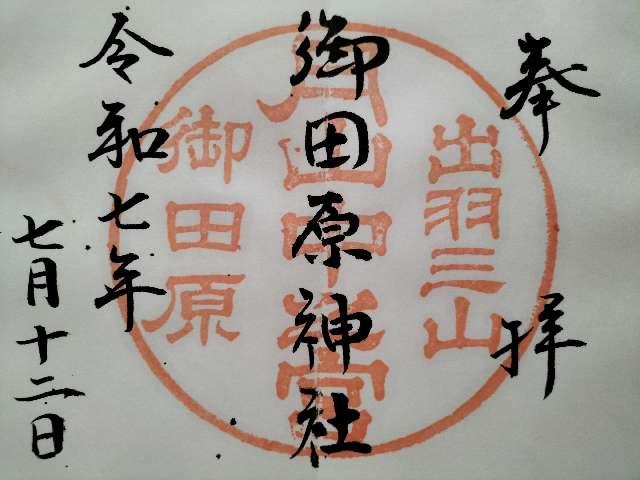 奉拝
出羽三山
御田原神社
月山中之宮
御田原
令和七年
七月十二日